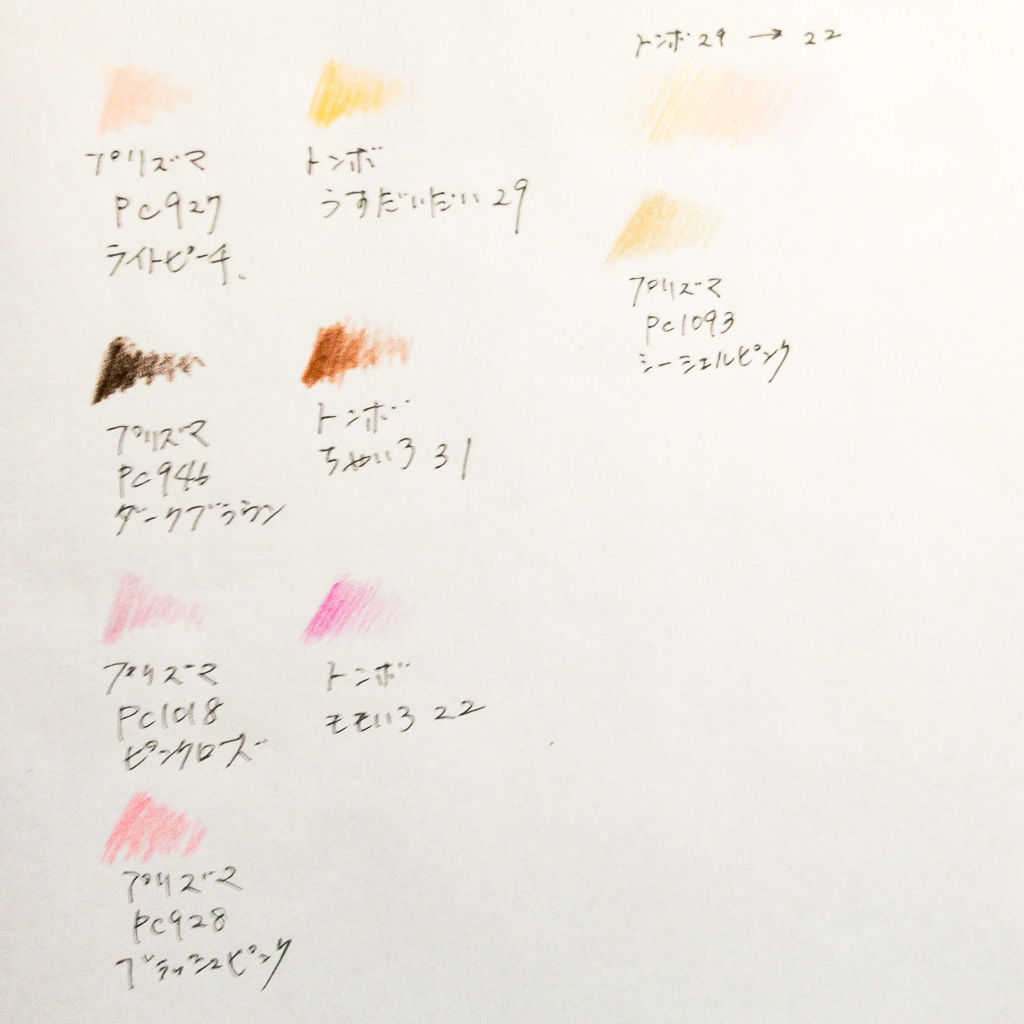 プリズマ
PC927
ライトピーチ
トンボ
うすだいだい 29
プリズマ
PC946
ダークブラウン
トンボ
ちゃいろ 31
プリズマ
PC1018
ピンクローズ
トンボ
ももいろ 22
プリズマ
PC928
ブラッシュピンク
トンボ 29 → 22
プリズマ
PC1093
シーシェルピンク